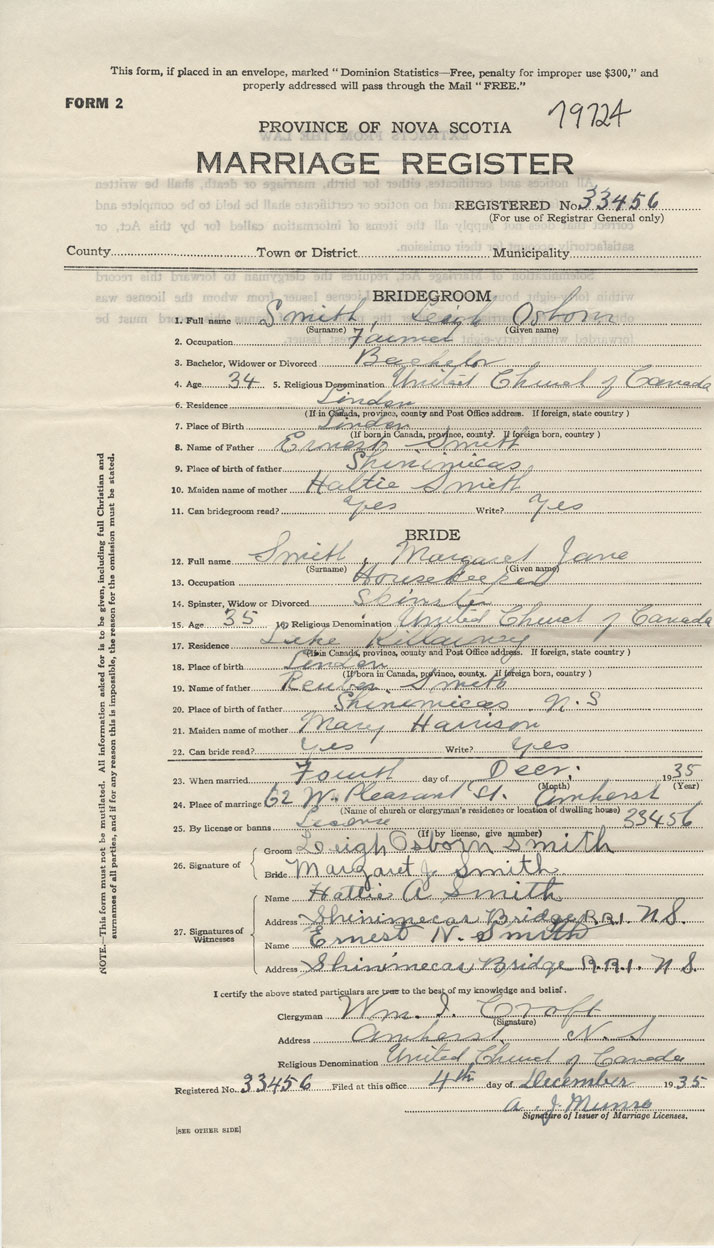 This form, if placed in an envelope, marked “Dominion Statistics—Free, penalty for improper use $300,” and
properly addressed will pass through the Mail “FREE.”
FORM 2
79724
PROVINCE OF NOVA SCOTIA
MARRIAGE REGISTER
REGISTERED No. 33456
(For use of Registrar General only)
County Town or District Municipality
BRIDEGROOM
1. Full name Smith, Leigh Osborn
(Surname) (Given name)
2. Occupation Farmer
3. Bachelor, Widower or Divorced Bachelor
4. Age 34 5. Religious Denomination United Church of Canada
6. Residence Linden
(If in Canada, province, county and Post Office address. If foreign, state country)
7. Place of Birth Linden
(If born in Canada, province, county. If foreign born, country)
8. Name of Father Ernest Smith
9. Place of birth of father Shinimicas
10. Maiden name of mother Hattie Smith
11. Can bridegroom read? Yes Write? Yes
BRIDE
12. Full name Smith, Margaret Jane
(Surname) (Given name)
13. Occupation Housekeeper
14. Spinster, Widow or Divorced Spinster
15. Age 35 16. Religious Denomination United Church of Canada
17. Residence Lake Killarney
(If in Canada, province, county and Post Office address. If foreign, state country)
18. Place of birth Linden
(If born in Canada, province, county. If foreign born, country)
19. Name of father Reuben Smith
20. Place of birth of father Shinimicas N.S
21. Maiden name of mother Mary Harrison
22. Can bride read? Yes Write? Yes
23. When married Fourth day of Decr. 1935
(Month) (Year)
24. Place of marriage 62 W. Pleasant St. Amherst
(Name of church or clergyman's residence or location of dwelling house)
25. By license or banns License 33456
(If by license, give number)
26. Signature of
Groom Leigh Osborn Smith
Bride Margaret J Smith
27. Signatures of Witnesses
Name Hattie A Smith
Address Shinimecas Bridge R.R.1. N.S.
Name Ernest N. Smith
Address Shinimecas Bridge R.R.1. N S.
I certify the above stated particulars are true to the best of my knowledge and belief.
Clergyman Wm. I. Croft
(Signature)
Address Amherst N. S
Religious Denomination United Church of Canada
Registered No. 33456 Filed at this office 4th day of December 1935
A. J. Munro
Signature of Issuer of Marriage Licenses.
[SEE OTHER SIDE]
NOTE.—This form must not be mutilated. All information asked for is to be given, including full Christian and
surnames of all parties, and if for any reason this is impossible, the reason for the omission must be stated.